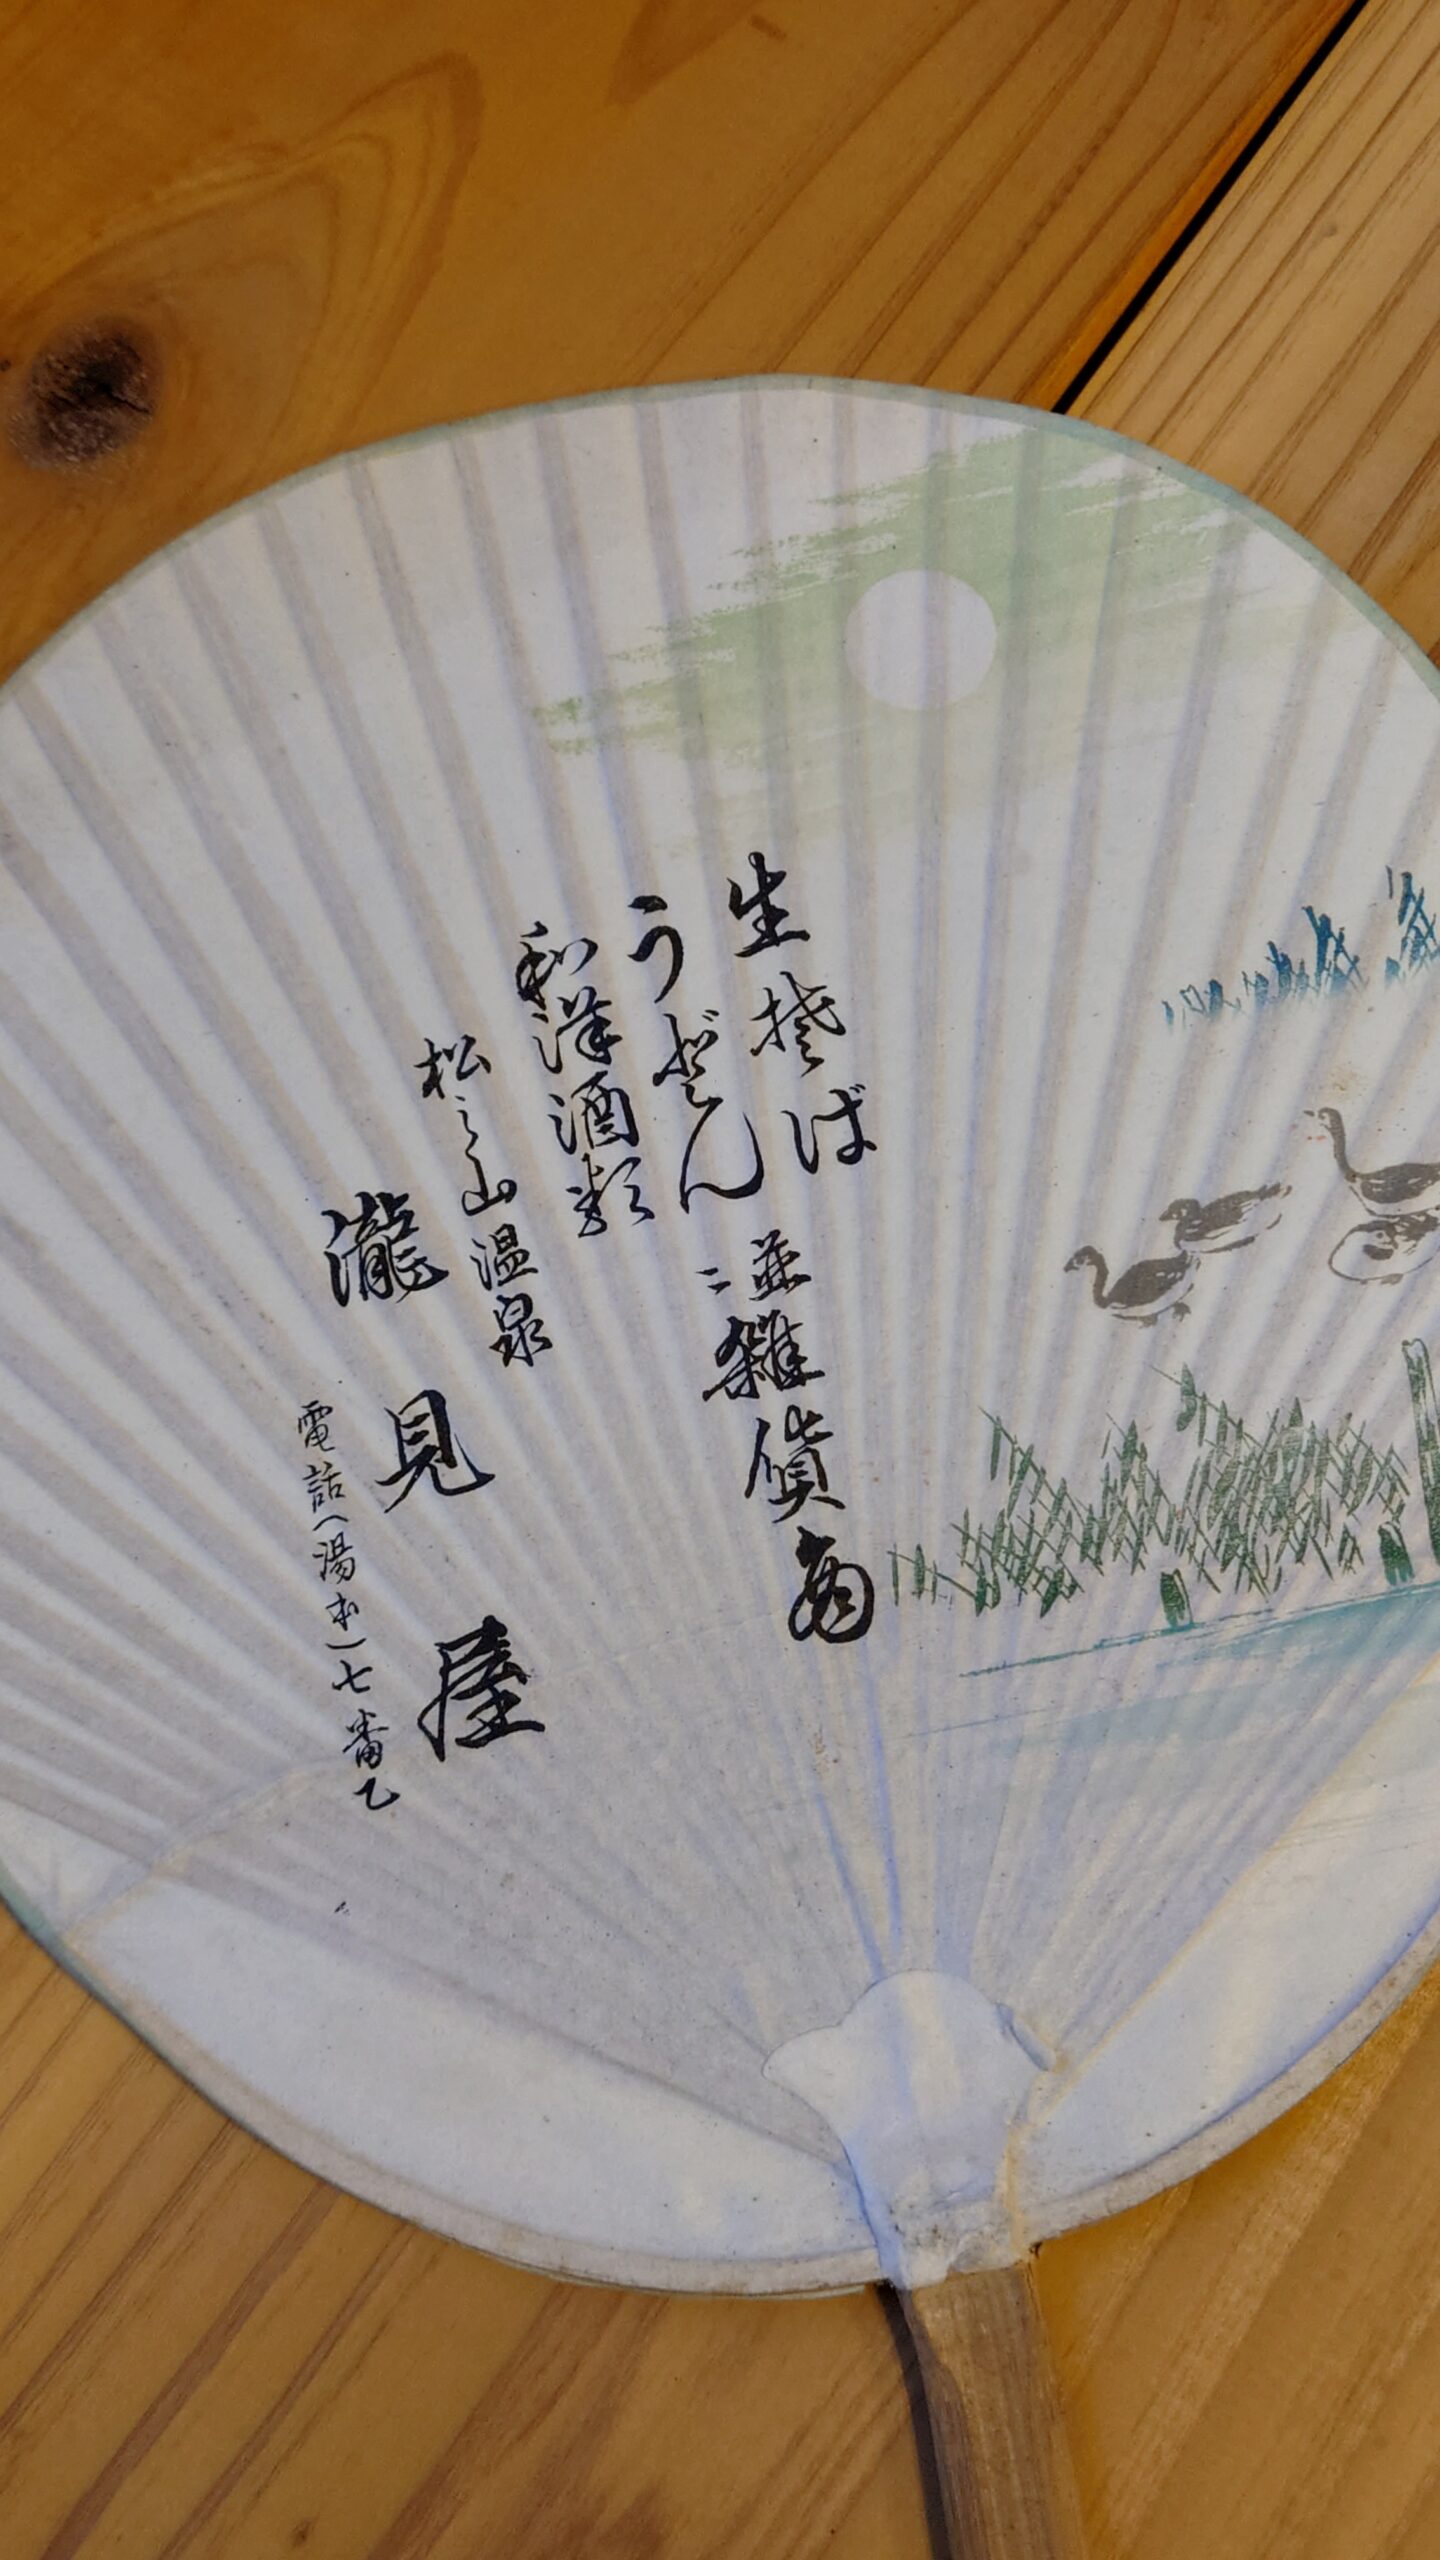 生そば
うどん
和洋酒類
並ニ雑貨商
松之山温泉
瀧見屋
電話(湯本)七番乙